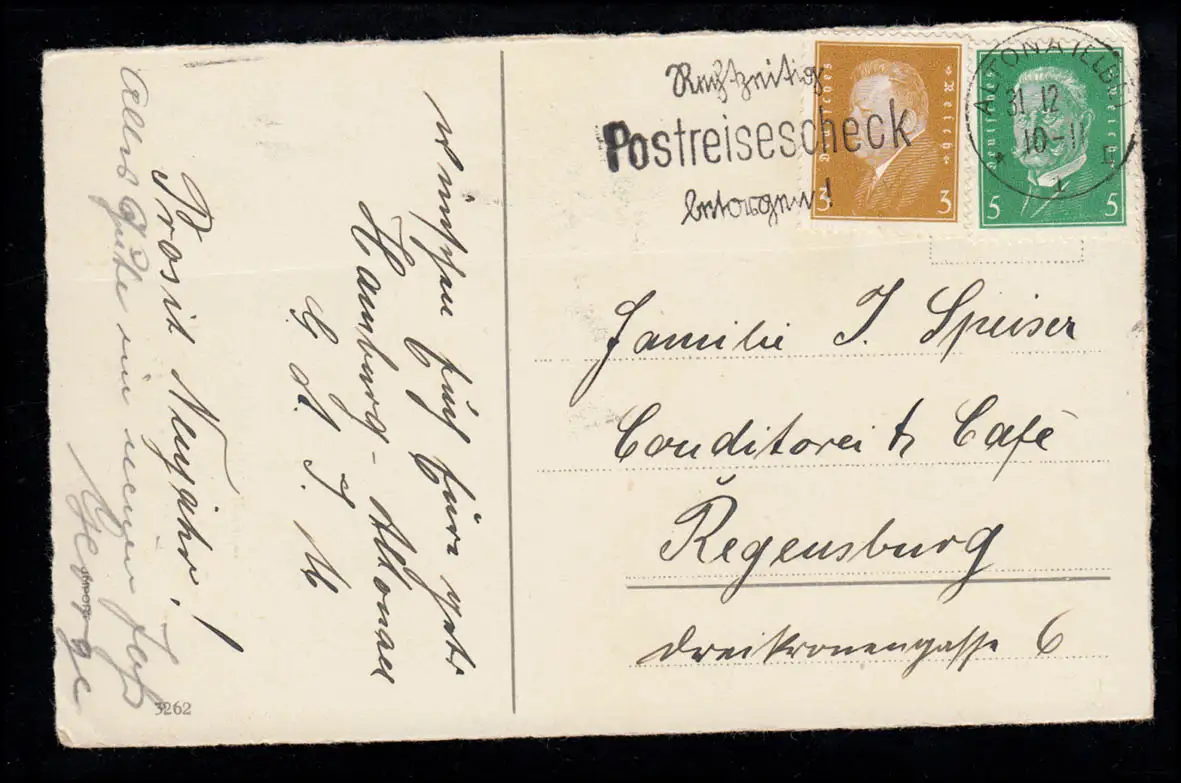 Rechtzeitig
Postreisescheck
besorgen!
Deutsches Reich
3 3
Deutsches Reich
5 5
ALTONA (ELBE)
31.12
10-11
Familie J. Speiser
Conditorei & Café
Regensburg
Dreikronengasse 6
Prosit Neujahr!
wünschen Euch Eure
Hamburg-Altonaer
Alles Gute im neuen Jahr
George
3262